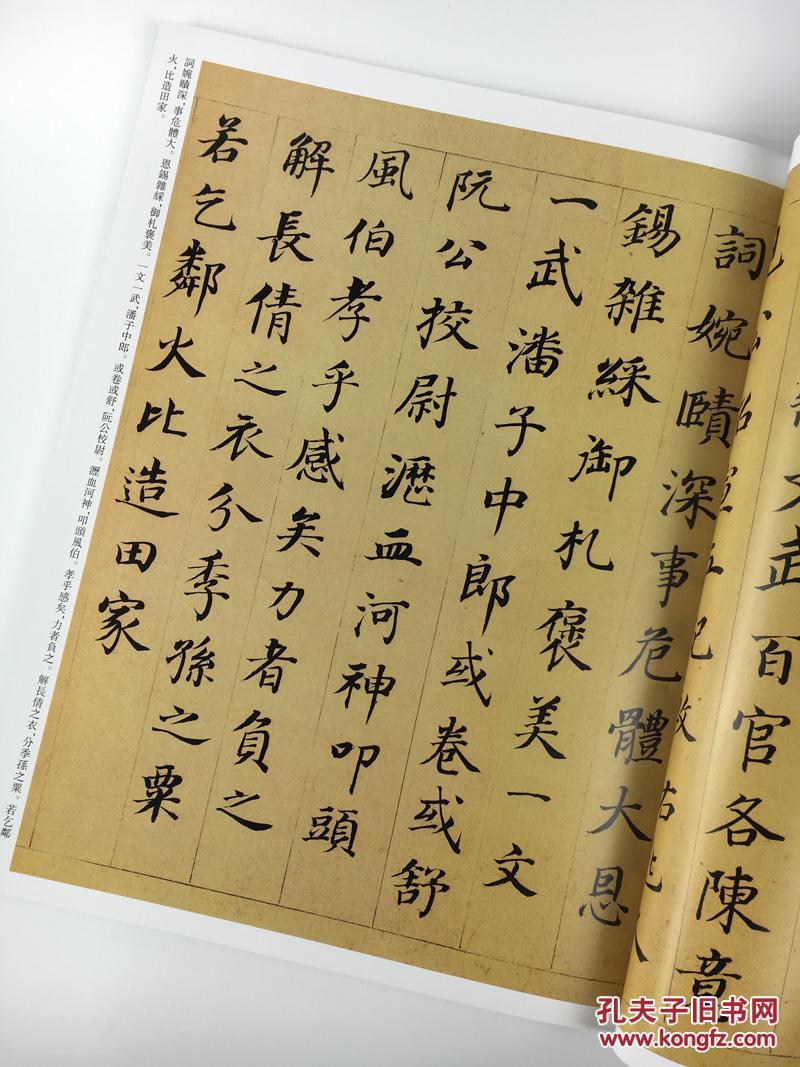 文武百官各陳意
詞婉賾深事危體大恩
錫雜綵御札褒美一文
一武潘子中郎或卷或舒
阮公挍尉瀝血河神叩頭
風伯孝乎感矣力者負之
解長倩之衣分季孫之粟
若乞鄰火比造田家
詞婉賾深，事危體大。恩錫雜綵，御札褒美。一文一武，潘子中郎。或卷或舒，阮公校尉。瀝血河神，叩頭風伯。孝乎感矣，力者負之。解長倩之衣，分季孫之粟。若乞鄰
火，比造田家。
孔夫子旧书网
www.kongfz.com